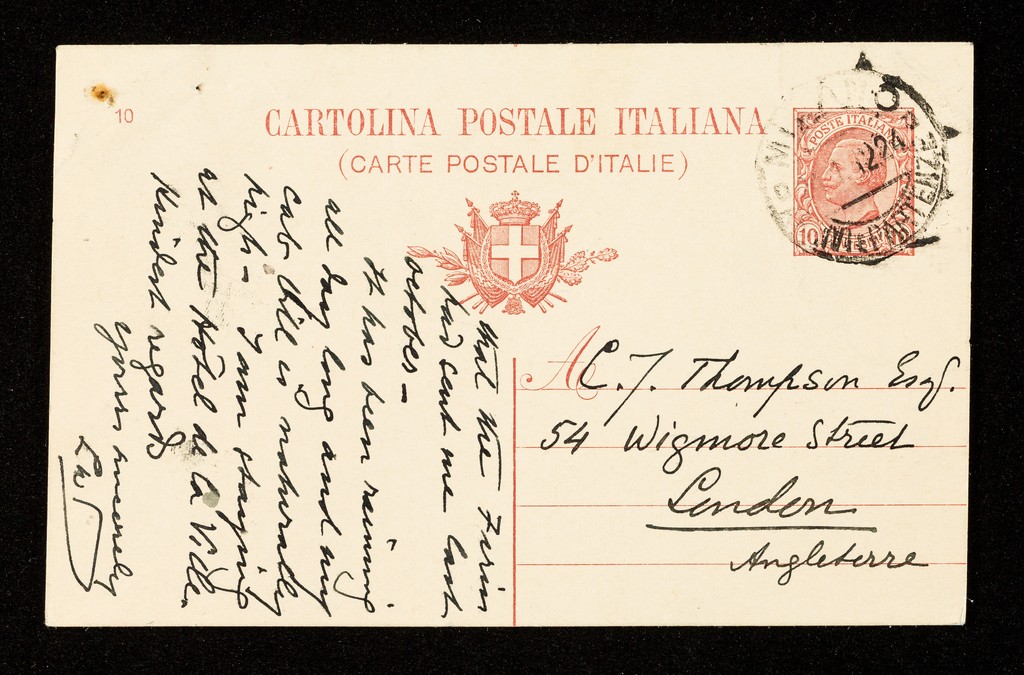 10
CARTOLINA POSTALE ITALIANA
(CARTE POSTALE D'ITALIE)
MILANO
POSTE ITALIANE
10
A
C. J. Thompson Esq.
54 Wigmore Street
London
Angleterre
that the
had sent me last
october —
It has been raining
all day long and my
cab bill is naturally
high — I am staying
at the Hôtel de la Ville.
Kindest regards
yours sincerely